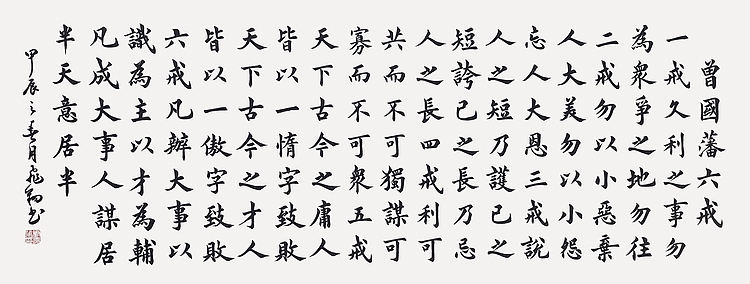 曾國藩六戒
一戒久利之事勿
為衆爭之地勿往
二戒勿以小惡棄
人大美勿以小怨
忘人大恩三戒説
人之短乃護己之
短誇己之長乃忌
人之長四戒利可
共而不可獨謀可
寡而不可衆五戒
天下古今之庸人
皆以一惰字致敗
天下古今之才人
皆以一傲字致敗
六戒凡辦大事以
識為主以才為輔
凡成大事人謀居
半天意居半
甲辰之春月飛翔书